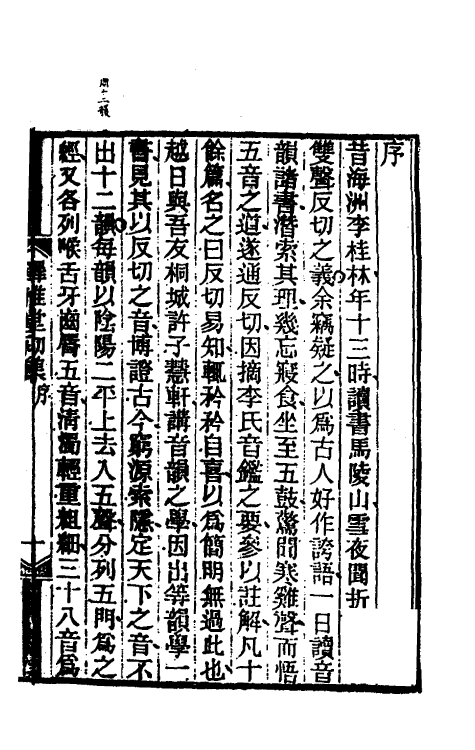 序
昔海洲李桂林年十三時讀書馬陵山雪夜聞折
雙聲反切之義余竊疑之以爲古人好作誇語一日讀音
韻諸書潛索其理幾忘寢食坐至五鼓驚聞寒雞聲而悟
五音之道遂通反切因摘李氏音鑑之要參以註解凡十
餘篇名之曰反切易知輒矜矜自喜以爲簡明無過此也
越日與吾友桐城許子慧軒講音韻之學因出等韻學一
書見其以反切之音博證古今窮源索隱定天下之音不
出十二韻每韻以陰陽二平上去入五聲分列五門爲之
經又各列喉舌牙齒脣五音清濁輕重粗細三十八音爲
堂初集
序
一